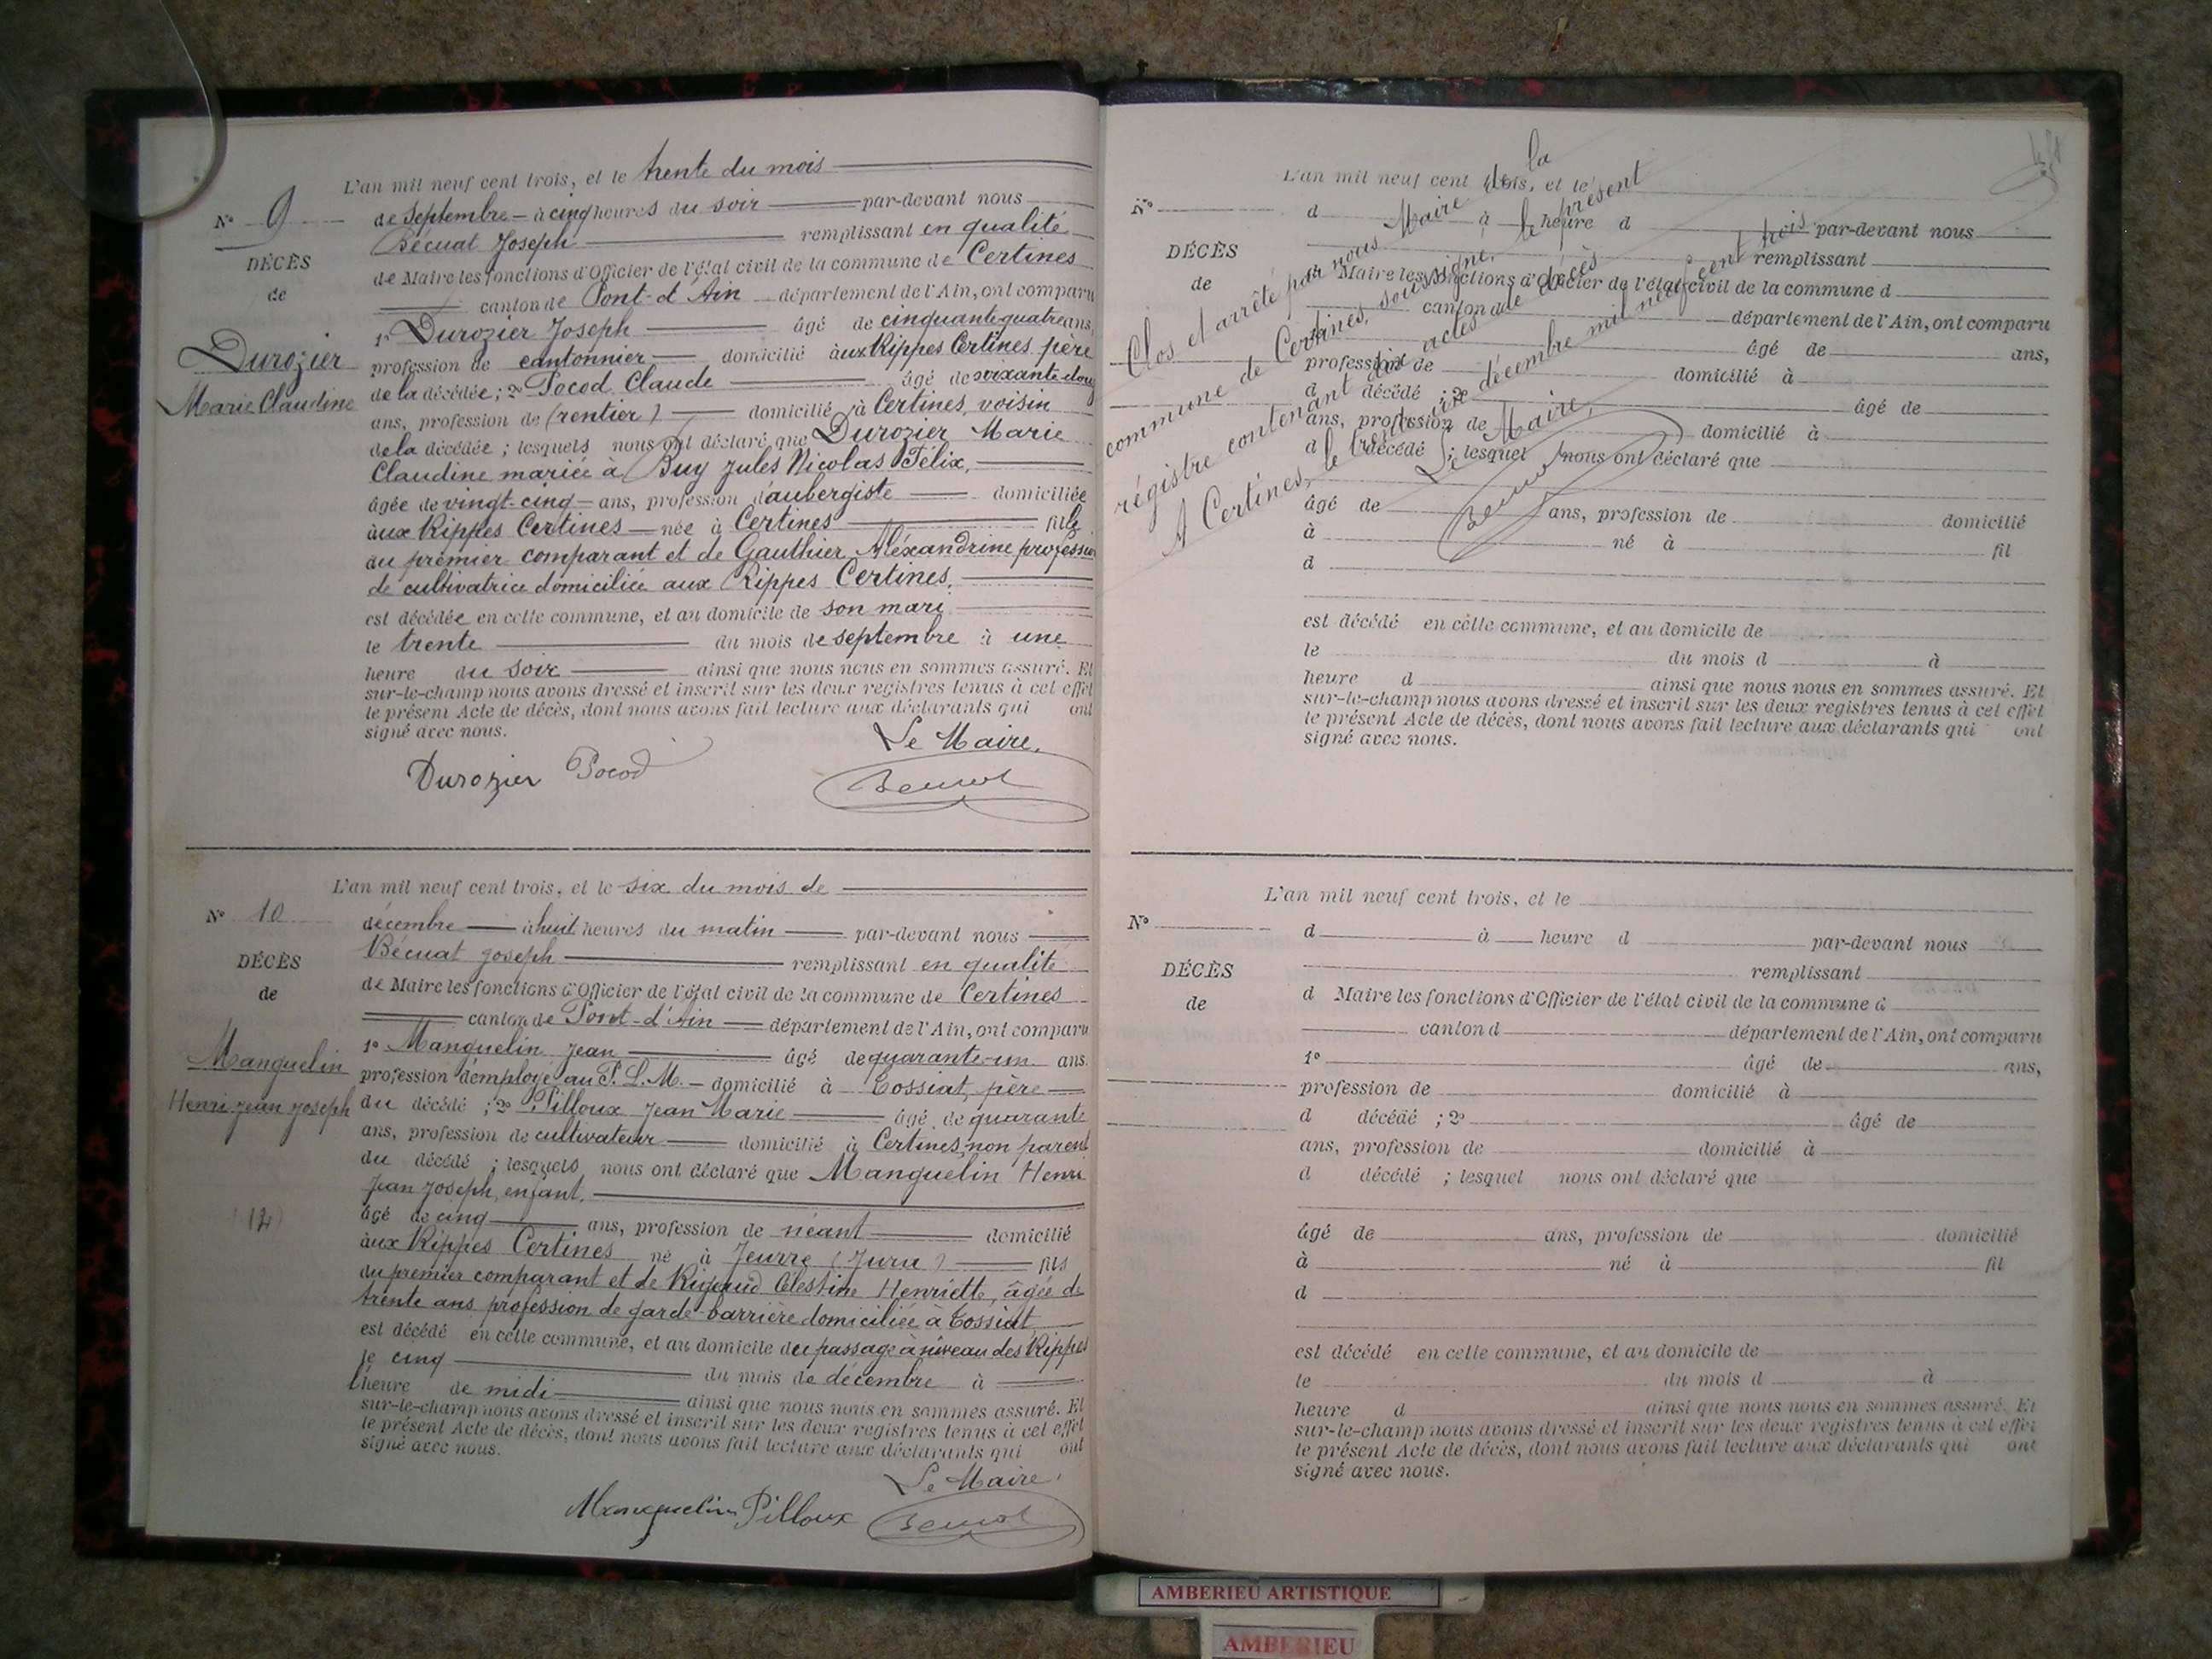 L'an mil neuf cent trois, et le trente du mois
N° 9
de Septembre - à cinq heures du soir par-devant nous
Bécuat Joseph remplissant en qualité
DÉCÈS
de Maire les fonctions d'Officier de l'état civil de la commune de Certines
de
canton de Pont-d'Ain département de l'Ain, ont comparu
1° Durozier Joseph âgé de cinquante quatre ans,
Durozier
profession de cantonnier domicilié aux Rippes Certines père
Marie Claudine
de la décédée ; 2° Pocod Claude âgé de soixante-douze
ans, profession de (rentier) domicilié à Certines, voisin
de la décédée ; lesquels nous ont déclaré que Durozier Marie
Claudine mariée à Buy Jules Nicolas Félix,
âgée de vingt-cinq ans, profession d'aubergiste domiciliée
aux Rippes Certines née à Certines fille
du premier comparant et de Gauthier Aléxandrine profession
de cultivatrice domiciliée aux Rippes Certines,
est décédée en cette commune, et au domicile de son mari
le trente du mois de septembre à une
heure du soir ainsi que nous nous en sommes assuré. Et
sur-le-champ nous avons dressé et inscrit sur les deux registres tenus à cet effet
le présent Acte de décès, dont nous avons fait lecture aux déclarants qui ont
signé avec nous.
Le Maire,
Durozier Pocod Bécuat
L'an mil neuf cent trois, et le six du mois de
N° 10
décembre à huit heures du matin par-devant nous
Bécuat Joseph remplissant en qualité
DÉCÈS
de Maire les fonctions d'Officier de l'état civil de la commune de Certines
de
canton de Pont-d'Ain département de l'Ain, ont comparu
1° Manguelin Jean âgé de quarante-un ans.
Manguelin
profession d'employé au P. L. M. - domicilié à Tossiat, père
Henri Jean Joseph
du décédé ; 2° Pilloux Jean Marie âgé de quarante
ans, profession de cultivateur domicilié à Certines, non parent
du décédé ; lesquels nous ont déclaré que Manguelin Henri
Jean Joseph, enfant,
âgé de cinq ans, profession de néant domicilié
aux Rippes Certines né à Jeurre (Jura) fils
du premier comparant et de Rigaud Célestine Henriette, âgée de
trente ans profession de garde-barrière domiciliée à Tossiat
est décédé en cette commune, et au domicile du passage à niveau des Rippes
le cinq du mois de décembre à
l'heure de midi ainsi que nous nous en sommes assuré. Et
sur-le-champ nous avons dressé et inscrit sur les deux registres tenus à cet effet
le présent Acte de décès, dont nous avons fait lecture aux déclarants qui ont
signé avec nous.
Le Maire,
Manguelin Pilloux Bécuat
L'an mil neuf cent trois, et le
N°
d à heure d par-devant nous
remplissant
DÉCÈS
d Maire les fonctions d'Officier de l'état civil de la commune d
de
canton d département de l'Ain, ont comparu
âgé de ans,
profession de domicilié à
d décédé ; 2° âgé de
ans, profession de domicilié à
d décédé ; lesquel nous ont déclaré que
âgé de ans, profession de domicilié
à né à fil
d
est décédé en cette commune, et au domicile de
le du mois d à
heure d ainsi que nous nous en sommes assuré. Et
sur-le-champ nous avons dressé et inscrit sur les deux registres tenus à cet effet
le présent Acte de décès, dont nous avons fait lecture aux déclarants qui ont
signé avec nous.
Clos et arrêté par nous Maire de la
commune de Certines, soussigné, le présent
régistre contenant dix actes de décès
A Certines, le trente un décembre mil neuf cent trois
Le Maire,
Bécuat
L'an mil neuf cent trois, et le
N°
d à heure d par-devant nous
remplissant
DÉCÈS
d Maire les fonctions d'Officier de l'état civil de la commune d
de
canton d département de l'Ain, ont comparu
1° âgé de ans,
profession de domicilié à
d décédé ; 2° âgé de
ans, profession de domicilié à
d décédé ; lesquel nous ont déclaré que
âgé de ans, profession de domicilié
à né à fil
d
est décédé en cette commune, et au domicile de
le du mois d à
heure d ainsi que nous nous en sommes assuré. Et
sur-le-champ nous avons dressé et inscrit sur les deux registres tenus à cet effet
le présent Acte de décès, dont nous avons fait lecture aux déclarants qui ont
signé avec nous.
AMBERIEU ARTISTIQUE
AMBERIEU